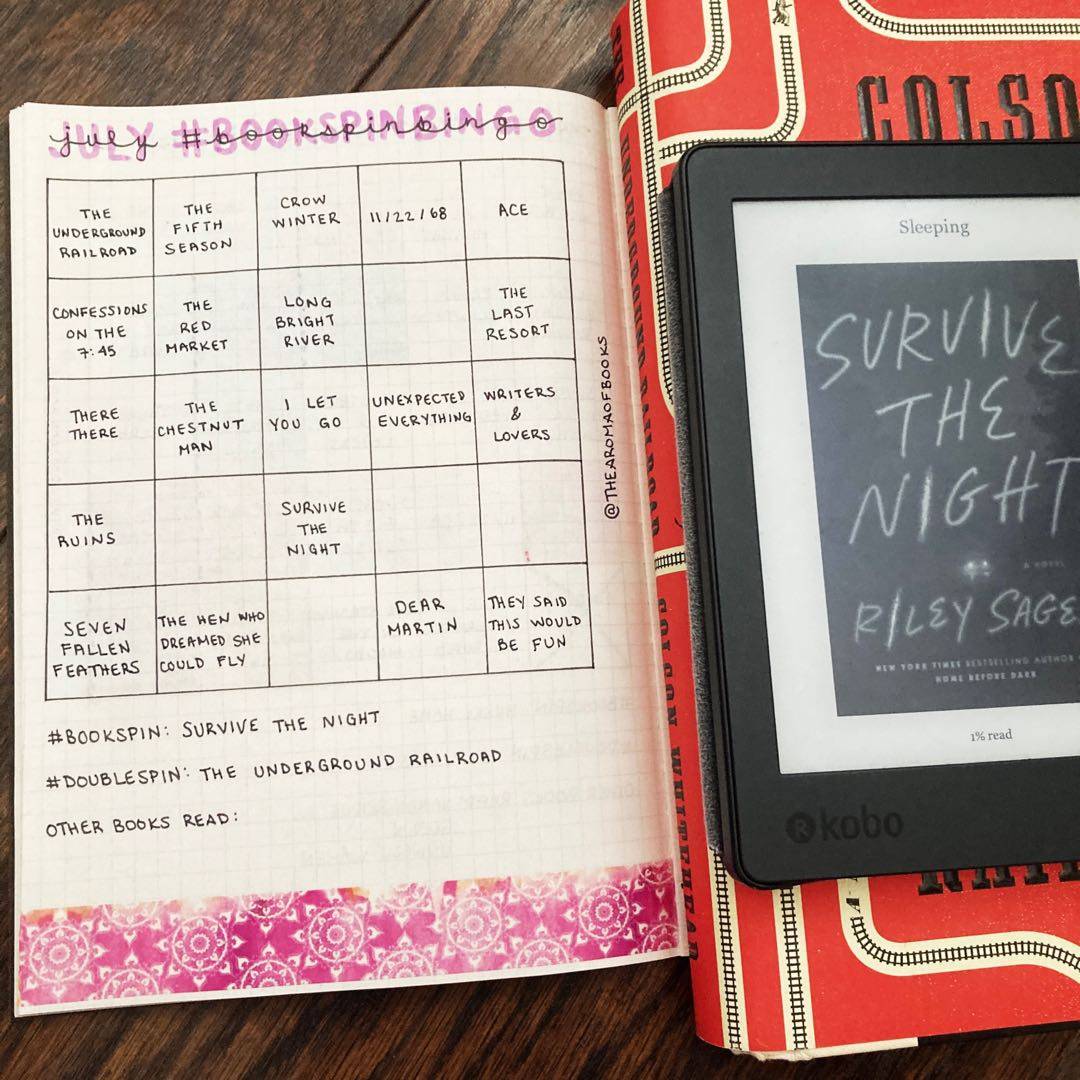 JULY #BOOKSPINBINGO
july #bookspinbingo
THE
UNDERGROUND
RAILROAD
THE
FIFTH
SEASON
CROW
WINTER
11/22/68
ACE
CONFESSIONS
ON THE
7:45
THE
RED
MARKET
LONG
BRIGHT
RIVER
THE
LAST
RESORT
THERE
THERE
THE
CHESTNUT
MAN
I LET
YOU GO
UNEXPECTED
EVERYTHING
WRITERS
&
LOVERS
THE
RUINS
SURVIVE
THE
NIGHT
SEVEN
FALLEN
FEATHERS
THE HEN WHO
DREAMED SHE
COULD FLY
DEAR
MARTIN
THEY SAID
THIS WOULD
BE FUN
@THEAROMAOFBOOKS
#BOOKSPIN: SURVIVE THE NIGHT
#DOUBLESPIN: THE UNDERGROUND RAILROAD
OTHER BOOKS READ:
COLSO
UNDERGROUND RAILROAD
COLSON WHITEHEAD
Sleeping
SURVIVE
THE
NIGHT
A NOVEL
RILEY SAGE
NEW YORK TIMES BESTSELLING AUTHOR
HOME BEFORE DARK
1% read
kobo